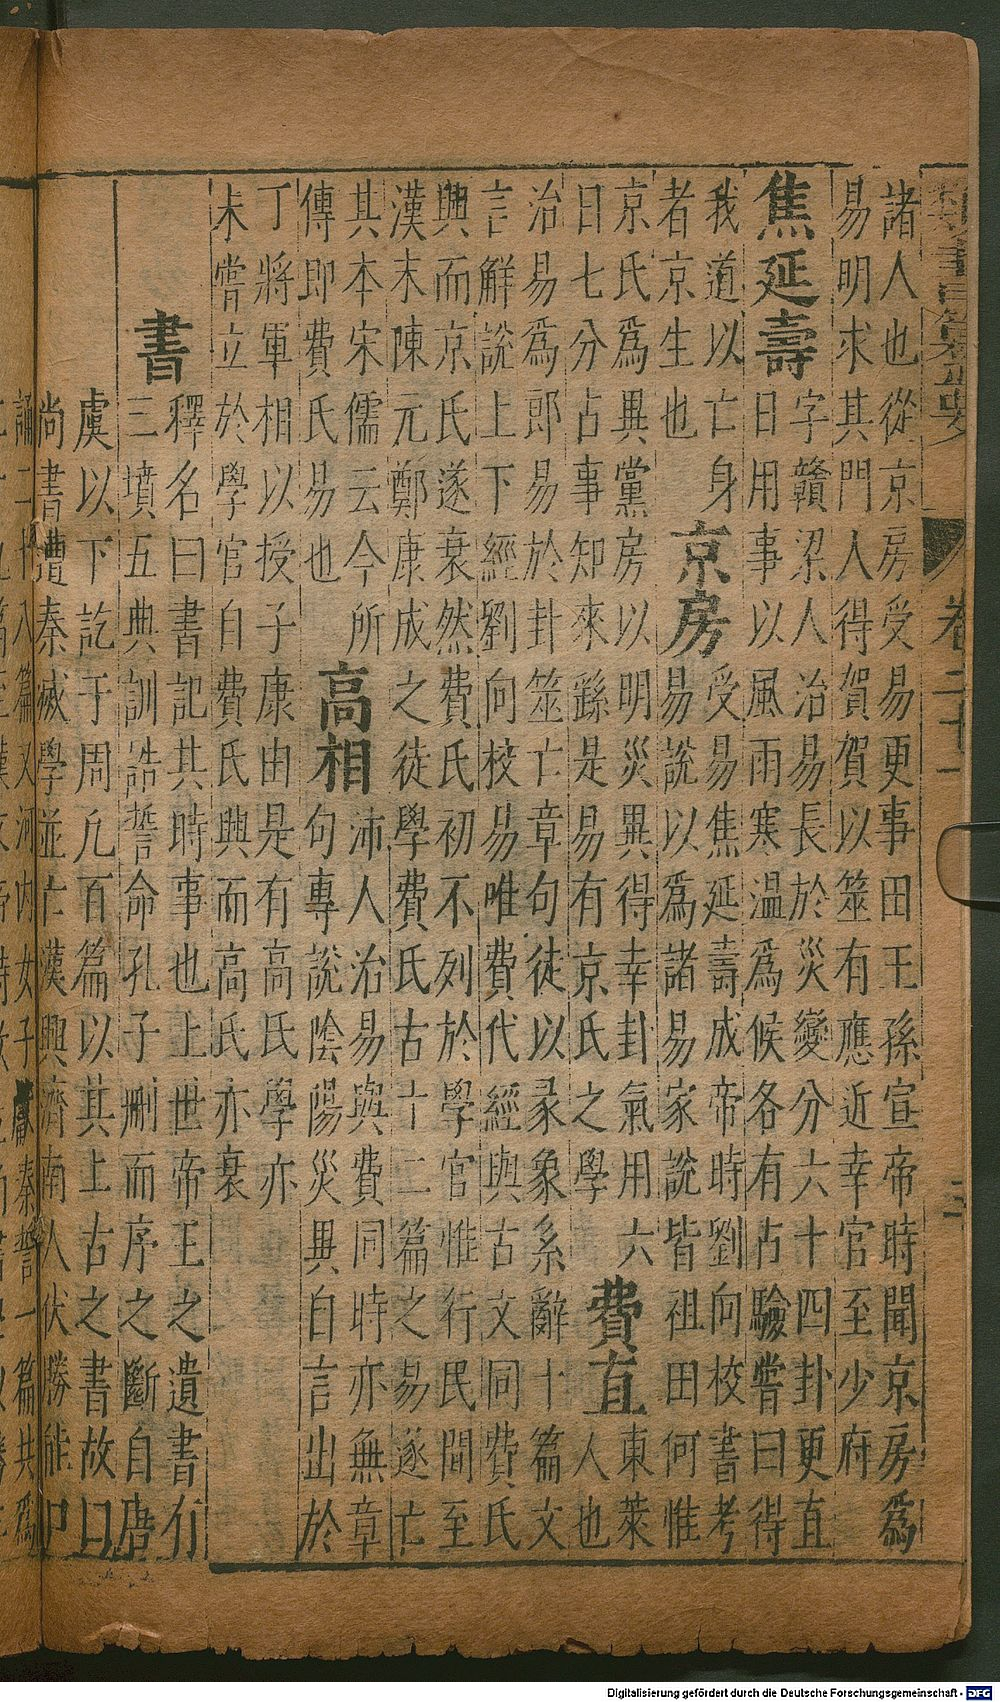 卷二十一
三
諸人也從京房受易更事田王孫宣帝時聞京房爲
易明求其門人得賀賀以筮有應近幸官至少府
焦延壽
字贛梁人治易長於災變分六十四卦更直
日用事以風雨寒温爲候各有占驗嘗曰得
我道以亡身
者京生也
京房
受易焦延壽成帝時劉向校書考
易說以爲諸易家說皆祖田何惟
京氏爲異黨房以明災異得幸卦氣用六
日七分占事知來繇是易有京氏之學
費直
東萊
人也
治易爲郎易於卦筮亡章句徒以彖象系辭十篇文
言觧說上下經劉向校易唯費代經與古文同費氏
興而京氏遂衰然費氏初不列於學官惟行民間至
漢末陳元鄭康成之徒學費氏古十二篇之易遂亡
其本宋儒云今所
傳即費氏易也
高相
沛人治易與費同時亦無章
句專說陰陽災異自言出於
丁將軍相以授子康由是有高氏學亦
未嘗立於學官自費氏興而高氏亦衰
書
釋名曰書記其時事也上世帝王之遺書有
三墳五典訓誥誓命孔子刪而序之斷自唐
虞以下訖于周凡百篇以其上古之書故曰
尚書遭秦滅學並亡漢興濟南人伏勝能口
誦二十八篇又河内女子獻秦誓一篇共爲
Digitalisierung gefördert durch die Deutsche Forschungsgemeinschaft - DFG